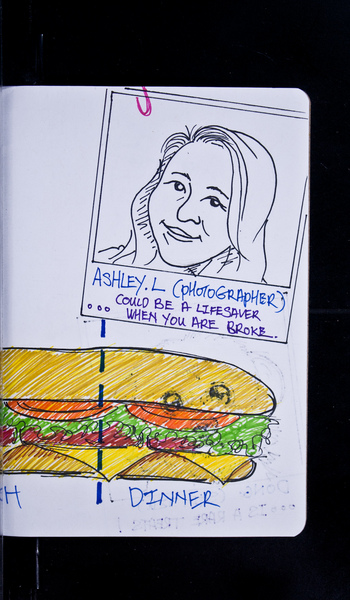 ASHLEY.L (PHOTOGRAPHER)
... COULD BE A LIFESAVER
WHEN YOU ARE BROKE.
H DINNER